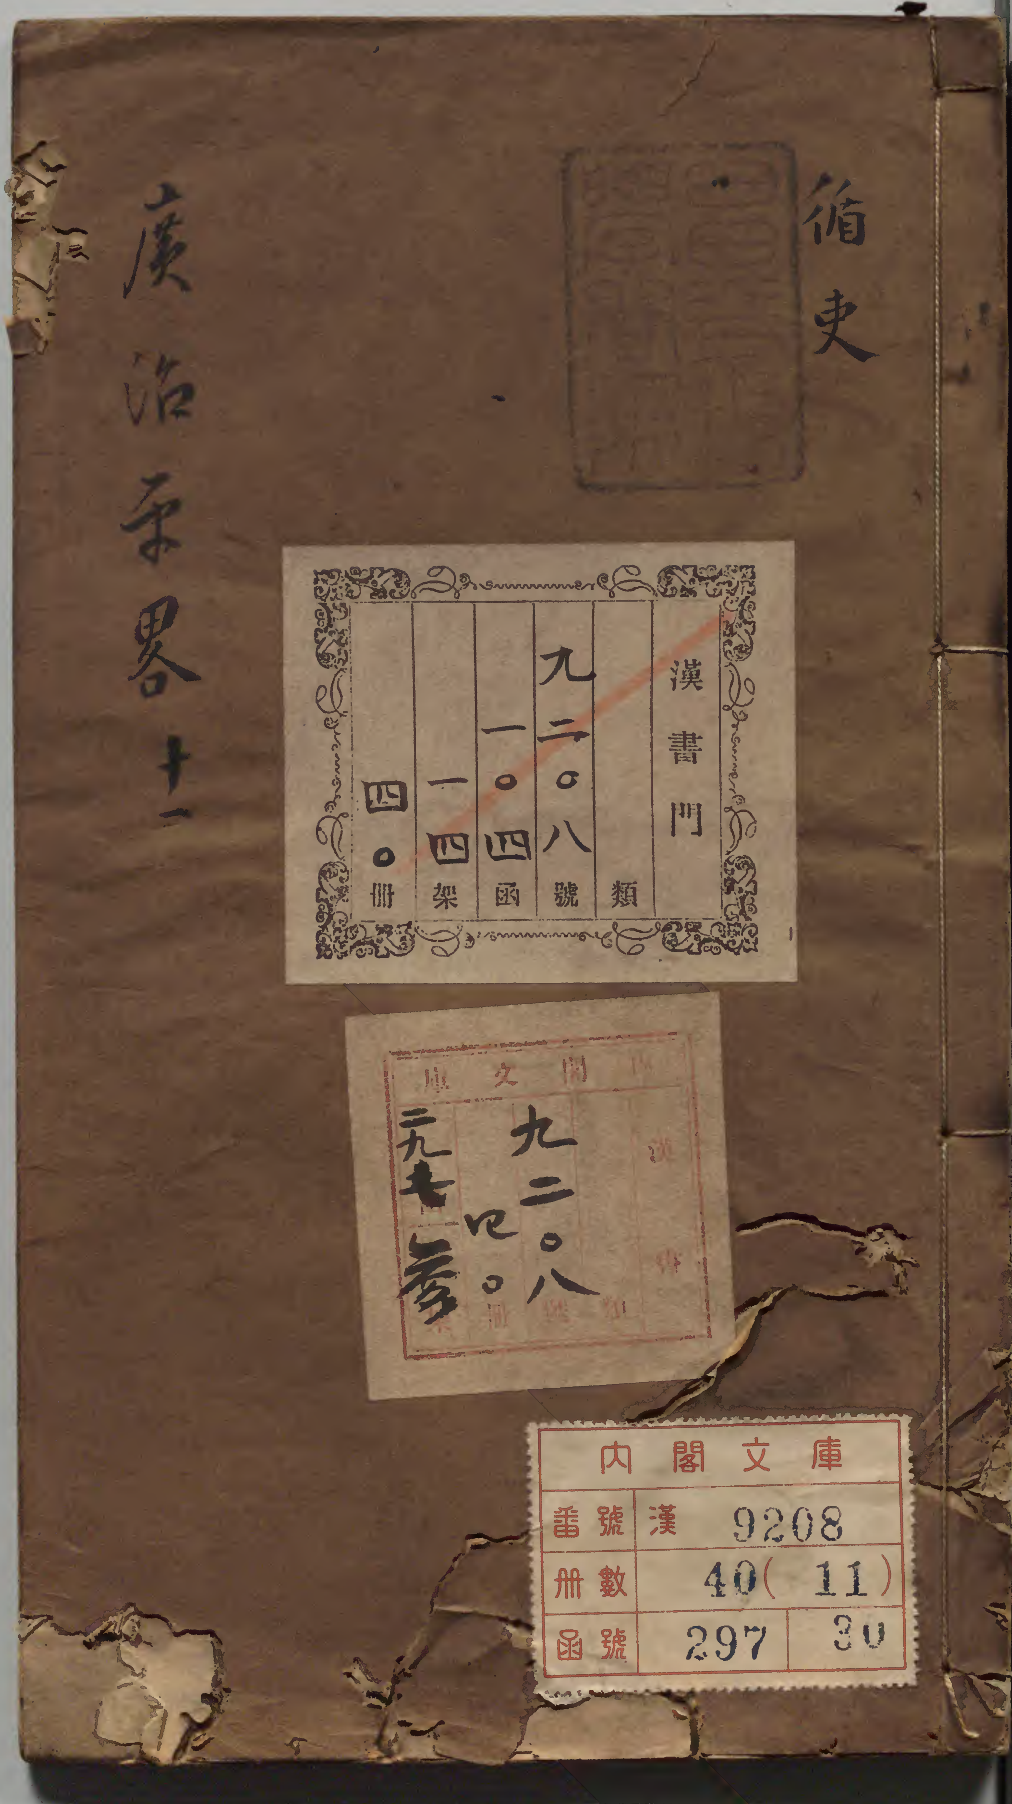 循吏
廣治平畧十一
漢書門
類
九二〇八號
一〇四函
一四架
四〇冊
閣文庫
漢書
類
九二〇八號
四〇冊
二九七
参架
内閣文庫
番號 漢 9208
冊數 40(11)
函號 297 30